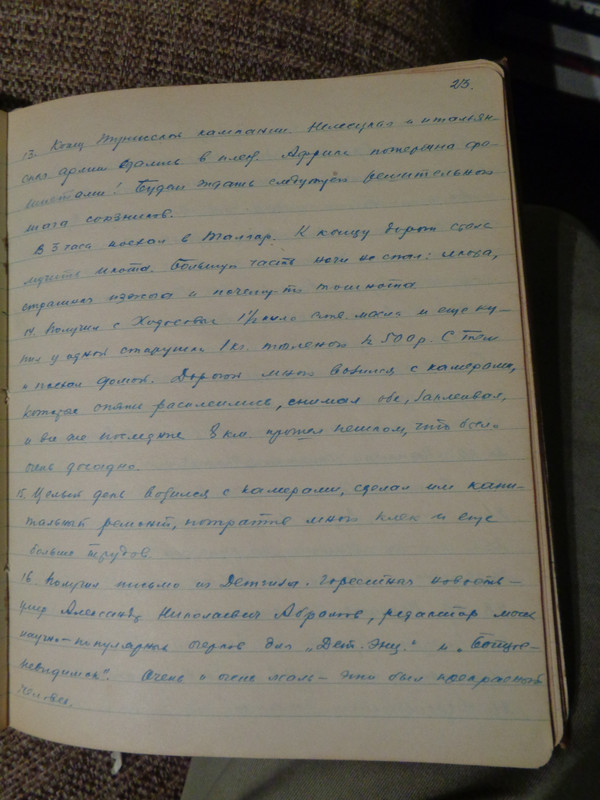 23.
13. Конец Тунисской кампании. Немецкая и итальян-
ская армии сдались в плен. Африка потеряна фа-
шистами! Будем ждать следующего решительного
шага союзников.
В 3 часа поехал в Талгар. К концу дороги стала
мучить икота. Большую часть ночи не спал: икота,
страшная изжога и почему-то тошнота
14. Получил с Ходосовой 1½ кило масла и еще ку-
пил у одной старушки 1 кг. топленого за 500 р. С тем
и поехал домой. Дорогой много возился с камерами,
которые опять расклеились, снимал обе, заклеивал,
и все же последние 8 км. прошел пешком, что было
очень досадно.
15. Целый день возился с камерами, сделал им капи-
тальный ремонт, потратив много клея и еще
больше трудов.
16. Получил письмо из Детгиза. Горестная новость –
умер Александр Николаевич Абрамов, редактор моих
научно-популярных очерков для „Дет. Энц." и „Бойцов-
невидимок". Очень и очень жаль – это был прекрасный
человек.